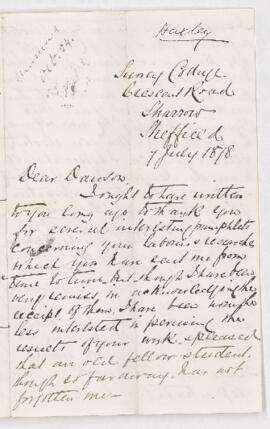 Huxley
Answered
Oct. 24.
Surrey Cottage
Crescent Road
Sharrow
Sheffield
7 July 1878.
Dear Dawson,
I ought to have written
to you long ago to thank you
for several interesting pamphlets
concerning your labours & researches
which you have sent me from
time to time. But though I have been
very remiss, in acknowledging the
receipt of them, I have been none the
less interested in perusing the
results of your work, & pleased
that an old fellow student,
though so far away, has not
forgotten me.